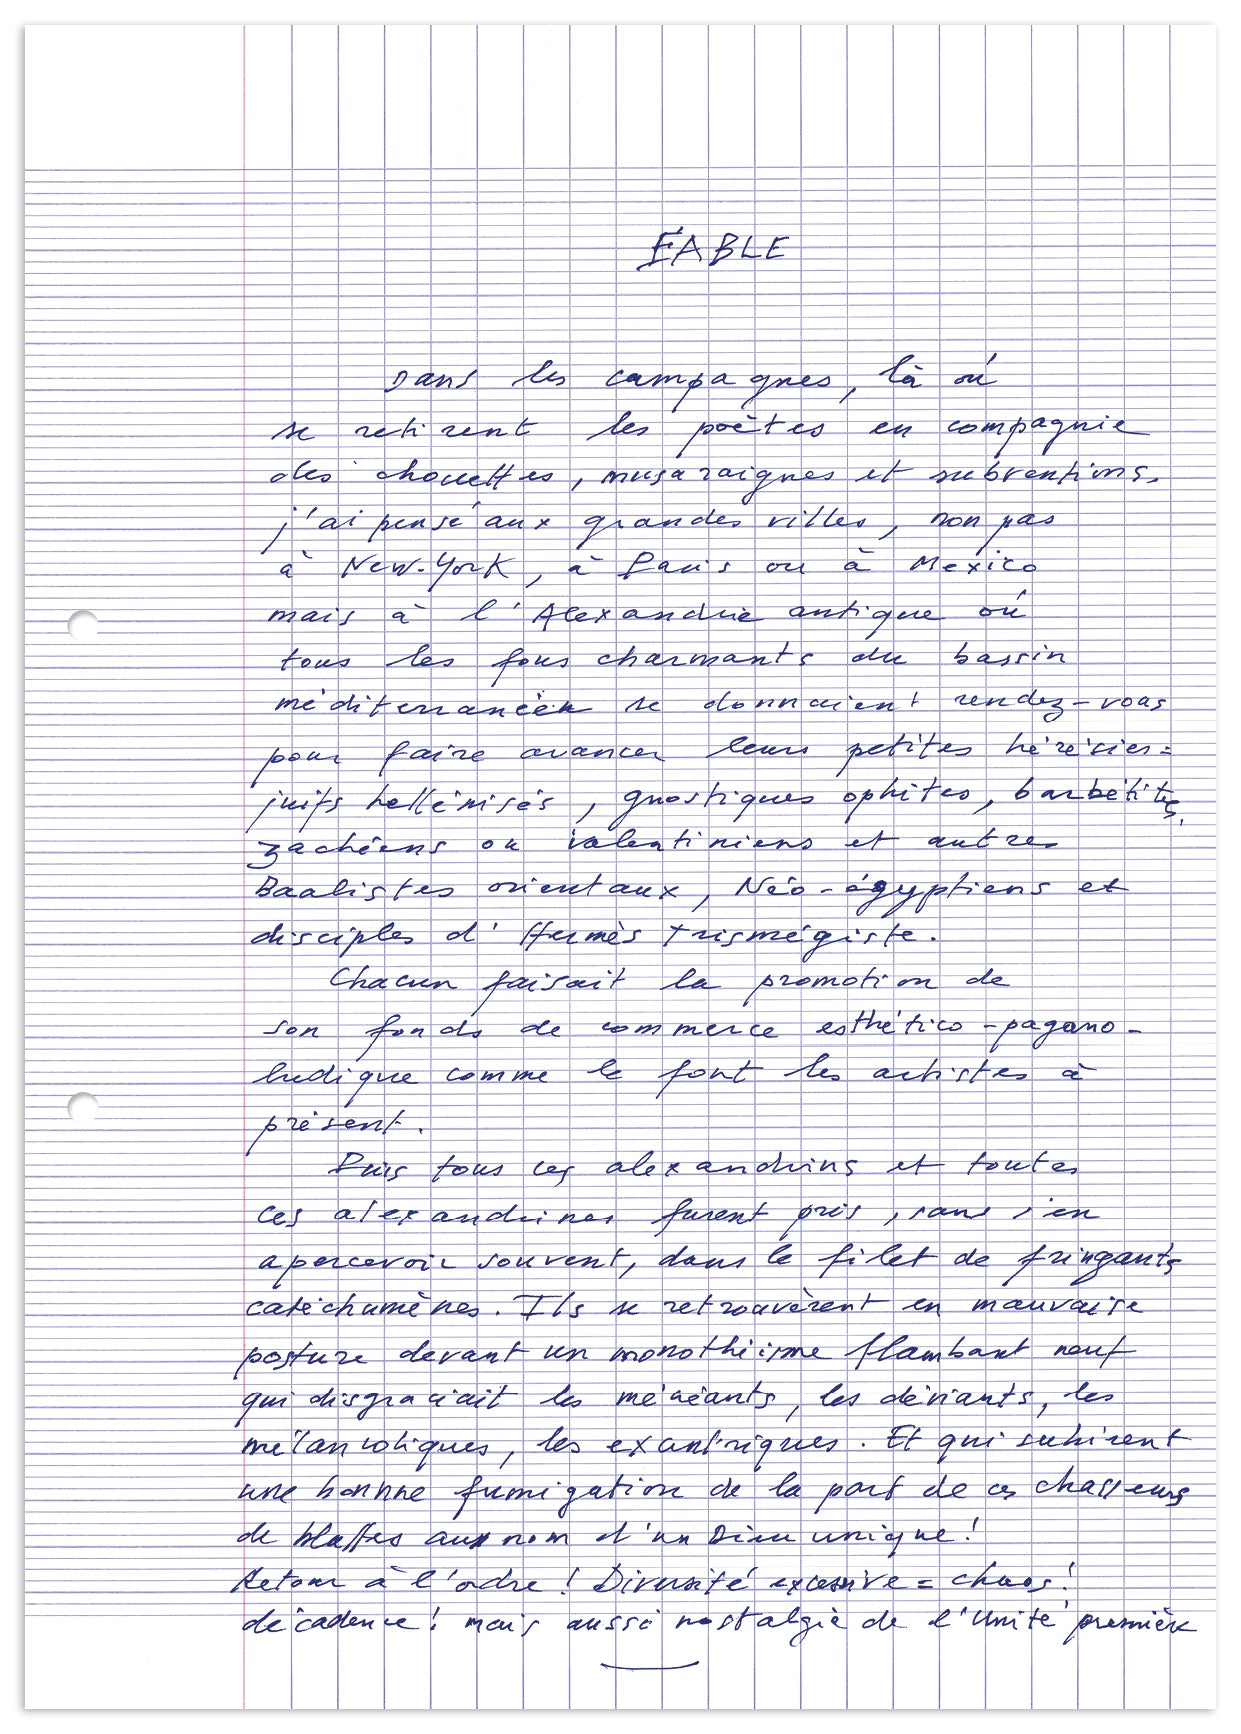 FABLE
Dans les campagnes, là où
se retirent les poètes en compagnie
des chouettes, musaraignes et subventions,
j'ai pensé aux grandes villes, non pas
à New-York, à Paris ou à Mexico
mais à l'Alexandrie antique où
tous les fous charmants du bassin
méditerranéen se donnaient rendez-vous
pour faire avancer leurs petites hérésies =
juifs hellénisés, gnostiques ophites, barbélites,
zachéens ou valentiniens et autres
Baalistes orientaux, Néo-égyptiens et
disciples d'Hermès Trismégiste.
Chacun faisait la promotion de
son fonds de commerce esthético-pagano-
ludique comme le font les artistes à
présent.
Puis tous ces alexandrins et toutes
ces alexandrines furent pris, sans s'en
apercevoir souvent, dans le filet de fringants
catéchumènes. Ils se retrouvèrent en mauvaise
posture devant un monothéisme flambant neuf
qui disgraciait les mécréants, les déviants, les
mélancoliques, les excentriques. Et qui subirent
une bonne fumigation de la part de ces chasseurs
de blattes au nom d'un Dieu unique !
Retour à l'ordre ! Diversité excessive = chaos !
décadence ! mais aussi nostalgie de l'Unité première